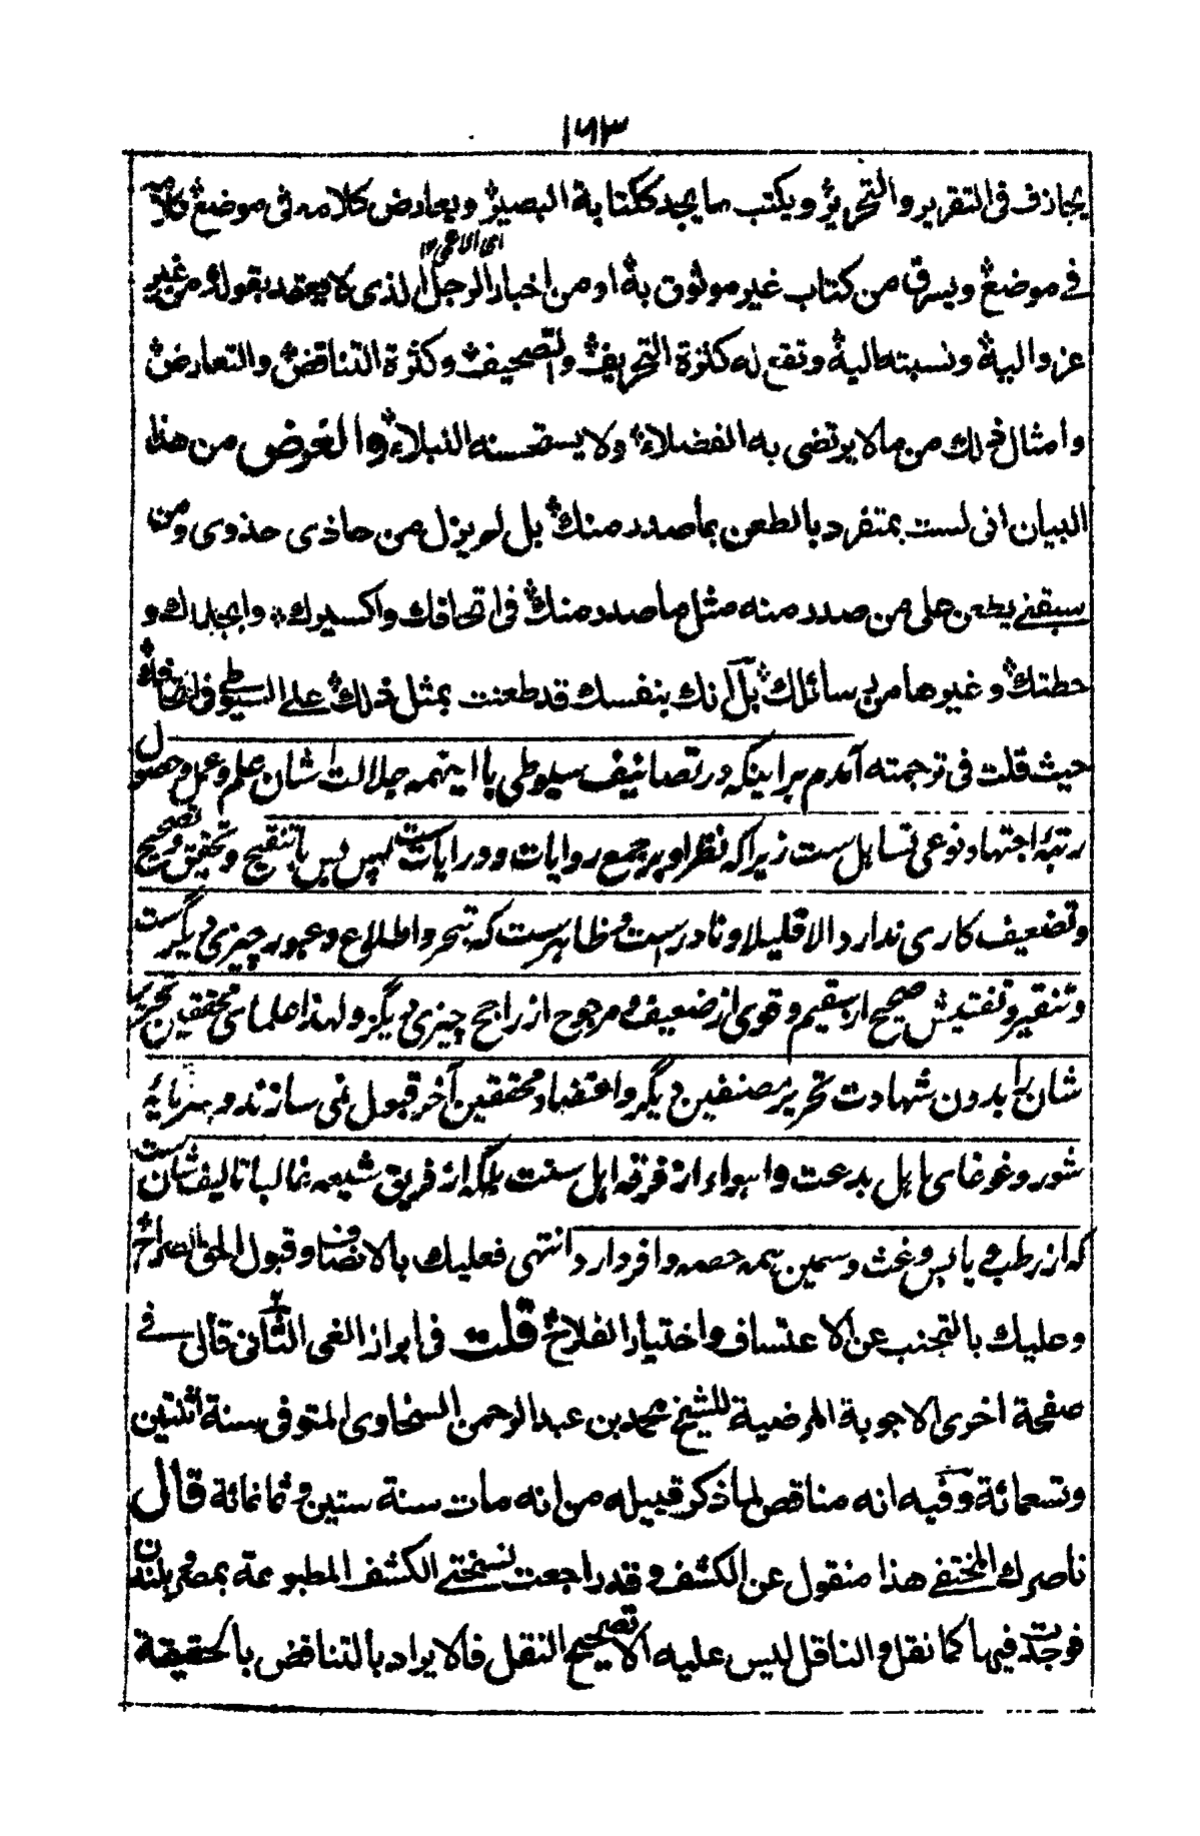 ۱۶۳
يجازف فى التقرير والتحرير ويكتب ما يجد ككتابة البصير ويعارض كلامه فى موضع كلامه
اى الاعمى ۱۲
فے موضع ويسرق من كتاب غير موثوق به او من اخبار الرجل الذى لا يعتمد بقوله من غير
عزو اليه ونسبته اليه وتقع له كثرة التحريف والتصحيف وكثرة التناقض والتعارض
وامثال ذلك من ما لا يرتضى به الفضلاء ولا يستحسنه النبلاء والغرض من هذا
البيان انى لست بمتفرد بالطعن بما صدر منك بل لم يزل من حاذى حذوى ومن
سبقنے يطعن على من صدر منه مثل ما صدر منك فى اتحافك واكسيرك وابجدك و
حطتك وغيرها من رسائلك بل انك بنفسك قد طعنت بمثل ذلك علے السيوطے فى اتحافك
حيث قلت فى ترجمته آمدم بر اينكه در تصانيف سيوطى با اينهمه جلالت شان علم وعمل وحصول
رتبۂ اجتهاد نوعى تساہل ست زيراكه نظر او بر جمع روايات ودرايات ست پس بس با تنقيح وتحقيق وتصحيح
وتضعيف كارى ندارد الا قليلا ونادرست وظاہرست كه تبحر واطلاع وعبور چيزى ديگرست
وتنقير وتفتيش صحيح از سقيم وقوى از ضعيف ومرجوح از راجح چيزى ديگر ولهذا علماى محققين تحرير
شان را بدون شهادت تحرير مصنفين ديگر واعتضاد محققين آخر قبول نمى سازند وسرمايۂ
شور وغوغاى اہل بدعت واہواء از فرقہ اہل سنت بلكه از فريق شيعه غالبا تاليف شان ست
كه از رطب ويابس وغث وسمين ہمه حصه وافر دارد انتهى فعليك بالانصاف وقبول الحق الصراح
وعليك بالتجنب عن الاعتساف واختيار الفلاح قلت فى ابراز الغى الثانى قال فے
صفحة اخرى الاجوبة المرضية للشيخ محمد بن عبد الرحمن السخاوى المتوفى سنة اثنتين
وتسعمائة وفيه انه مناقض لما ذكر قبيله من انه مات سنة ستين وثمانمائة قال
ناصرك المختفے هذا منقول عن الكشف وقد راجعت نسختے الكشف المطبوعة بمصر وبلندن
فوجدت فيها كما نقل والناقل ليس عليه الا تصحيح النقل فالايراد بالتناقض بالحقيقة